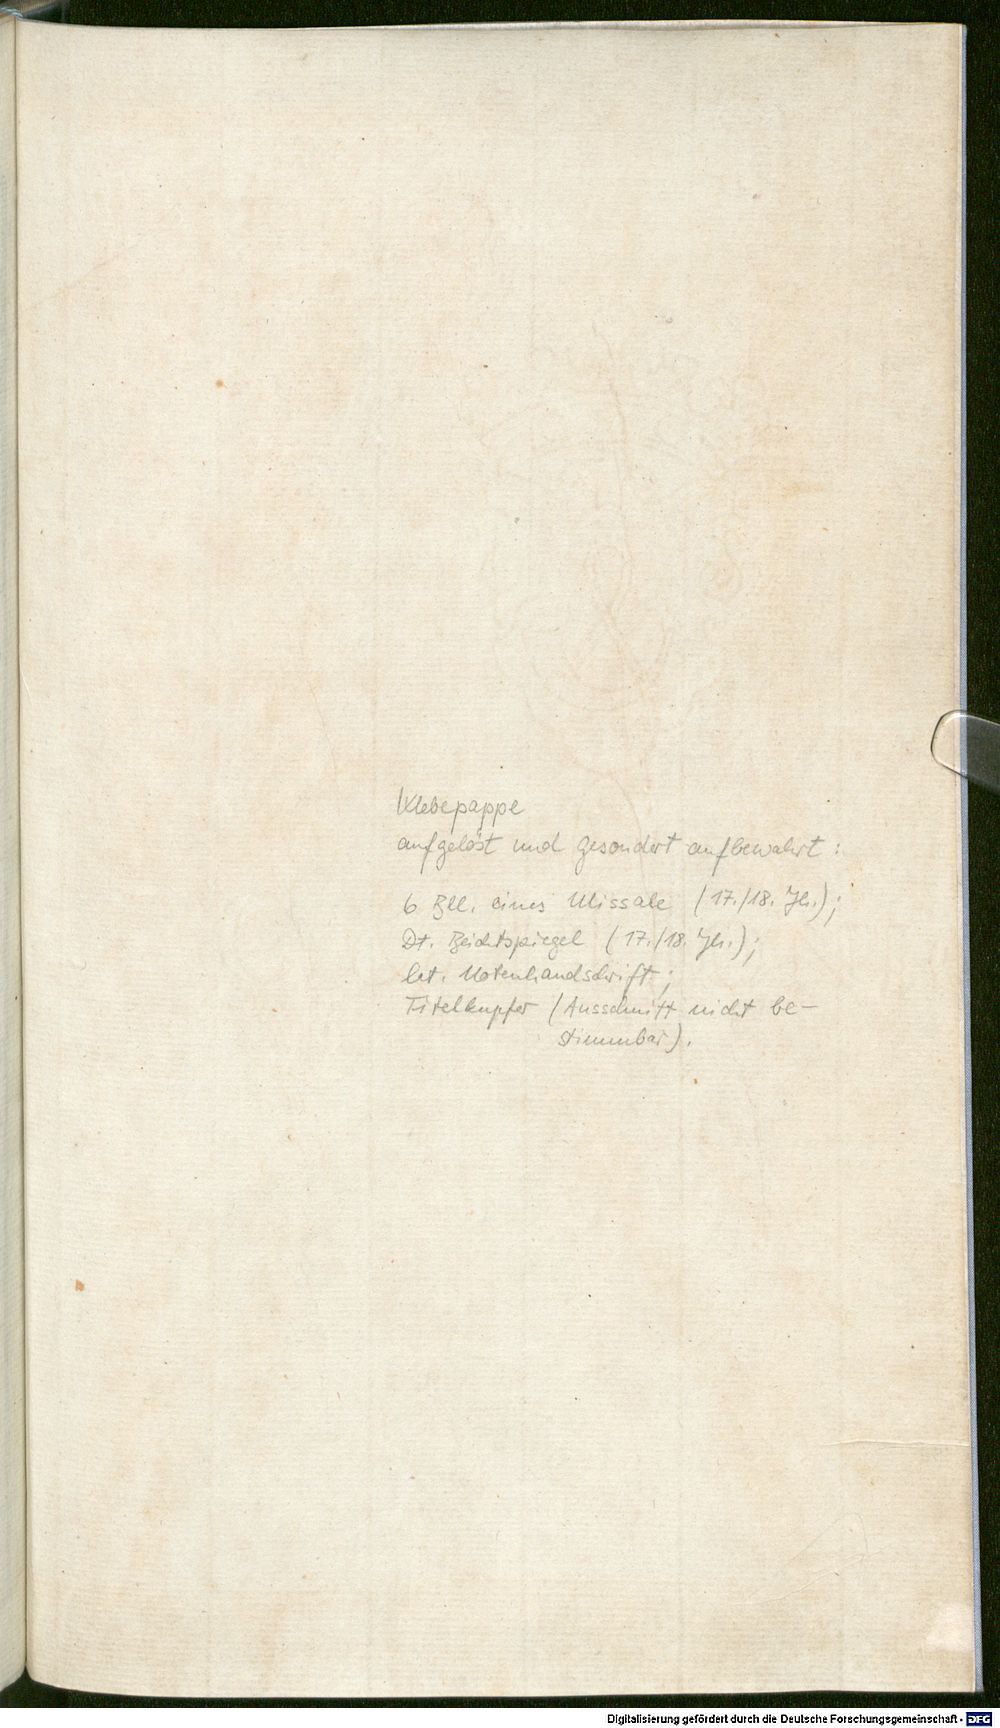 Klebepappe
aufgelöst und gesondert aufbewahrt:
6 Bll. eines Missale (17./18. Jh.);
Dt. Beichtspiegel (17./18. Jh.);
lat. Notenhandschrift;
Titelkupfer (Ausschnitt nicht be-
stimmbar).
Digitalisierung gefördert durch die Deutsche Forschungsgemeinschaft - DFG